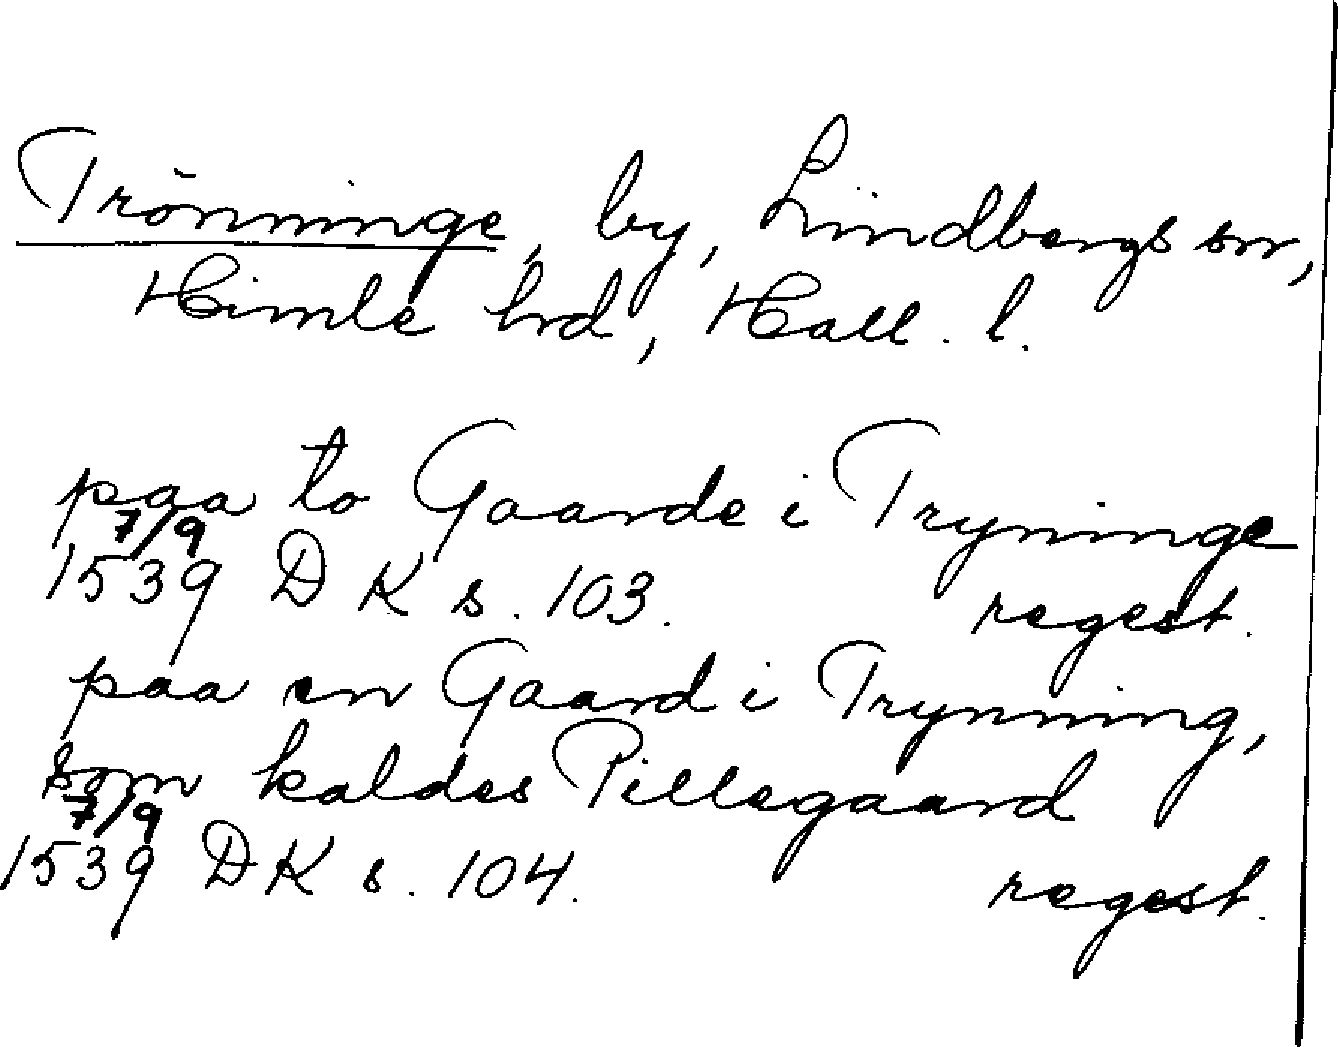 Trönninge, by, Lindbergs sn,
Himle hrd, Hall. l.
paa to Gaarde i Tryninge
7/9
1539 DK s. 103. regest.
paa en Gaard i Trynning,
som kaldes Pillegaard
7/9
1539 DK s. 104. regest.